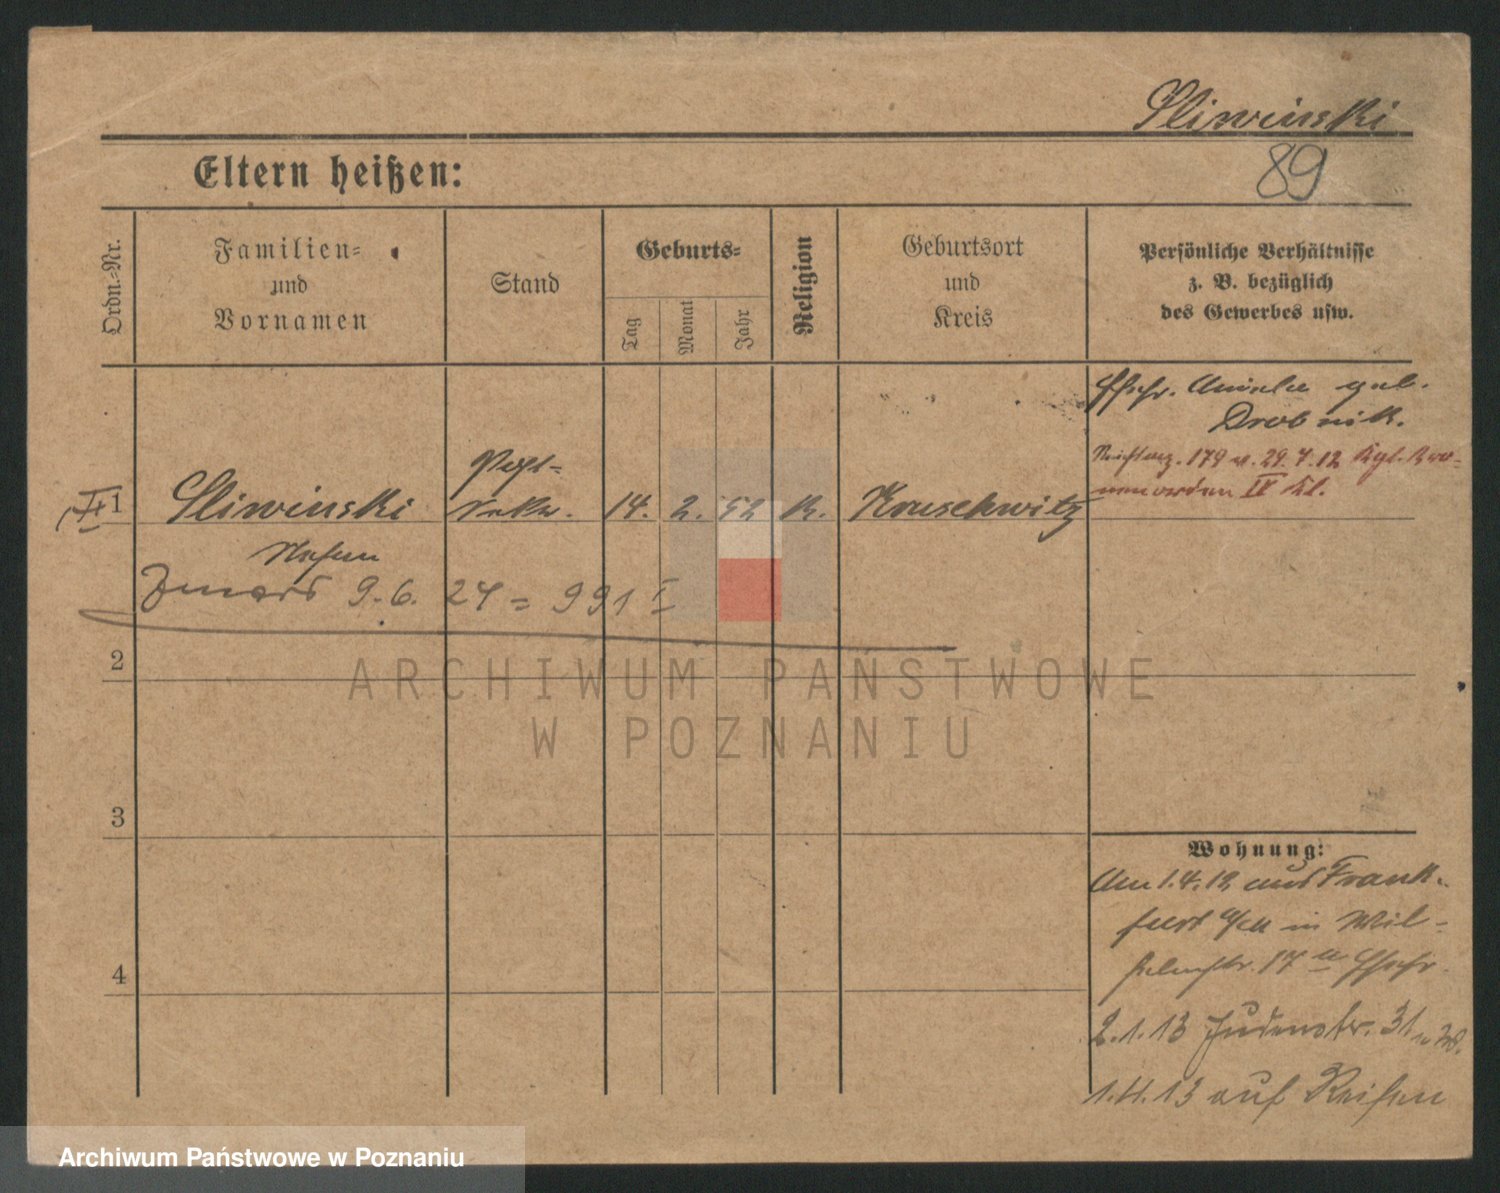 Sliwinski
89
Eltern heißen:
Ordn.-Nr.
Familien-
und
Vornamen
Stand
Geburts-
Tag
Monat
Jahr
Religion
Geburtsort
und
Kreis
Persönliche Verhältnisse
z. B. bezüglich
des Gewerbes usw.
Ehefr. geb.
Drobnik.
179 v. 29.7.12 Kgl. Kro-
nenorden IV Kl.
1 Sliwinski Post- 14. 2. 52 K. Kruschwitz
9.6. 24 = 991 I
2
3
4
Wohnung:
Am 1.4.12 aus Frank-
furt in Wil-
helmstr. 17 Ehefr.
2.1.13 Judenstr. 31
1.11.13 auf Reisen
ARCHIWUM PAŃSTWOWE
W POZNANIU
Archiwum Państwowe w Poznaniu